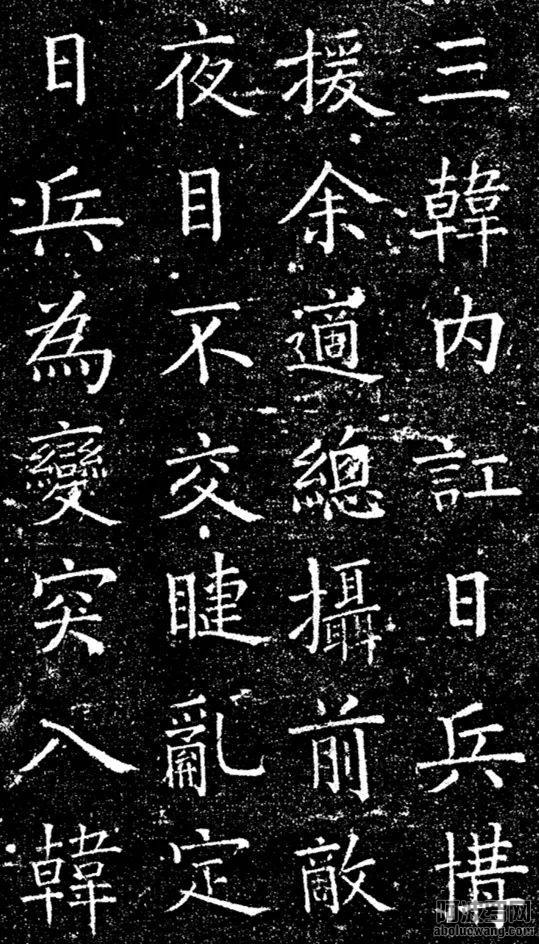 三韓内訌日兵搆
援余適總攝前敵
夜目不交睫亂定
日兵為變突入韓
阿波罗网
aboluowang.com